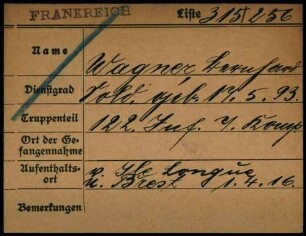 FRANKREICH Liste 315/256
Name Wagner Bernhard
Dienstgrad Sold. geb. 17.5.93.
Truppenteil 122. Inf. 7. Komp.
Ort der Gefangennahme
Aufenthaltsort v. Ile Longue
n. Brest 1.4.16.
Bemerkungen